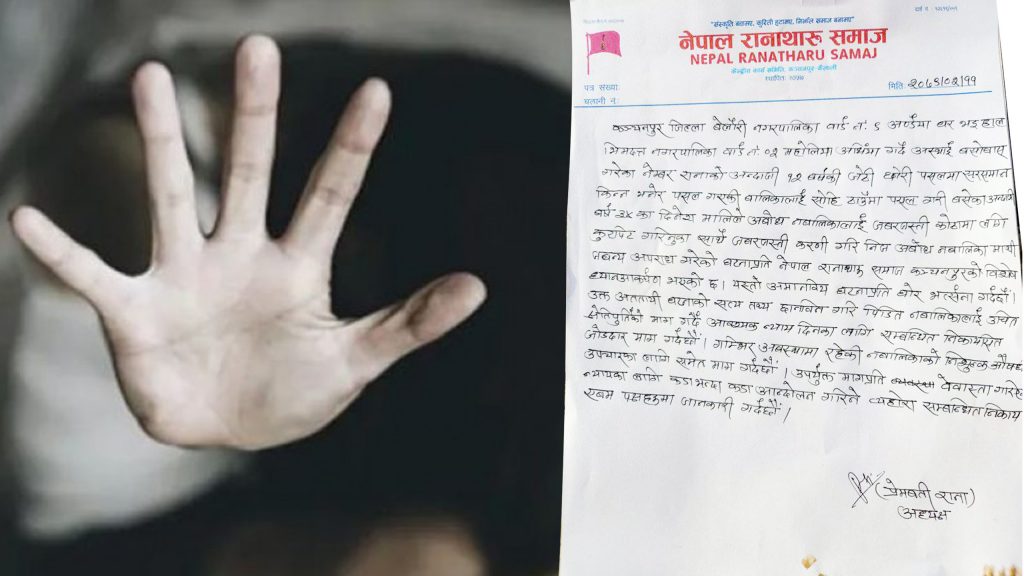 "संस्कृति बचाऔं, कुरिती हटाऔं, निर्मल समाज बनाऔं"
नेपाल रानाथारु समाज
NEPAL RANATHARU SAMAJ
केन्द्रीय कार्य समिति, कञ्चनपुर-कैलाली
स्थापित: २०५७
पत्र संख्या:
चलानी नं:
मिति: २०७९/०२/११
कञ्चनपुर जिल्ला बेलौरी नगरपालिका वार्ड नं. ६ अण्डैया घर भइ हाल
भिमदत्त नगरपालिका वार्ड नं. ०२ महेलिया अधिया गर्दै अस्थाई बसोबास
गरेका नेम्बर रानाको अन्दाजी १२ बर्षकी जेठी छोरी पसलमा सरसमान
किन्न भनेर पसल गएकी बालिकालाई सोहि ठाउँमा पसल गरी बसेका
वर्ष ३५ का दिनेश मालिले अबोध नबालिकालाई जबरजस्ती कोठामा लगि
कुटपिट गरिनुका साथै जबरजस्ती करणी गरि निज अबोध नबालिका माथी
जघन्य अपराध गरेको घटनाप्रति नेपाल रानाथारु समाज कञ्चनपुरको विशेष
ध्यानआकर्षण भएको छ। यस्तो अमानविय घटनाप्रति घोर भर्त्सना गर्दछौं।
उक्त अततायी घटनाको सत्य तथ्य छानविन गरि पिडित नबालिकालाई उचित
क्षेतिपुर्तिको माग गर्दै आवश्यक न्याय दिनका लागि सम्बन्धित निकायसित
जोडदार माग गर्दछौं। गम्भिर अवस्थामा रहेकी नबालिकाको निशुल्क औषध
उपचारका लागि समेत माग गर्दछौं। उपर्युक्त मागप्रति वेवास्ता गरिए
न्यायका लागि कडा भन्दा कडा आन्दोलन गरिने व्यहोरा सम्बन्धित निकाय
एबम पक्षहरुमा जानकारी गर्दछौं।
(प्रेमवती राना)
अध्यक्ष